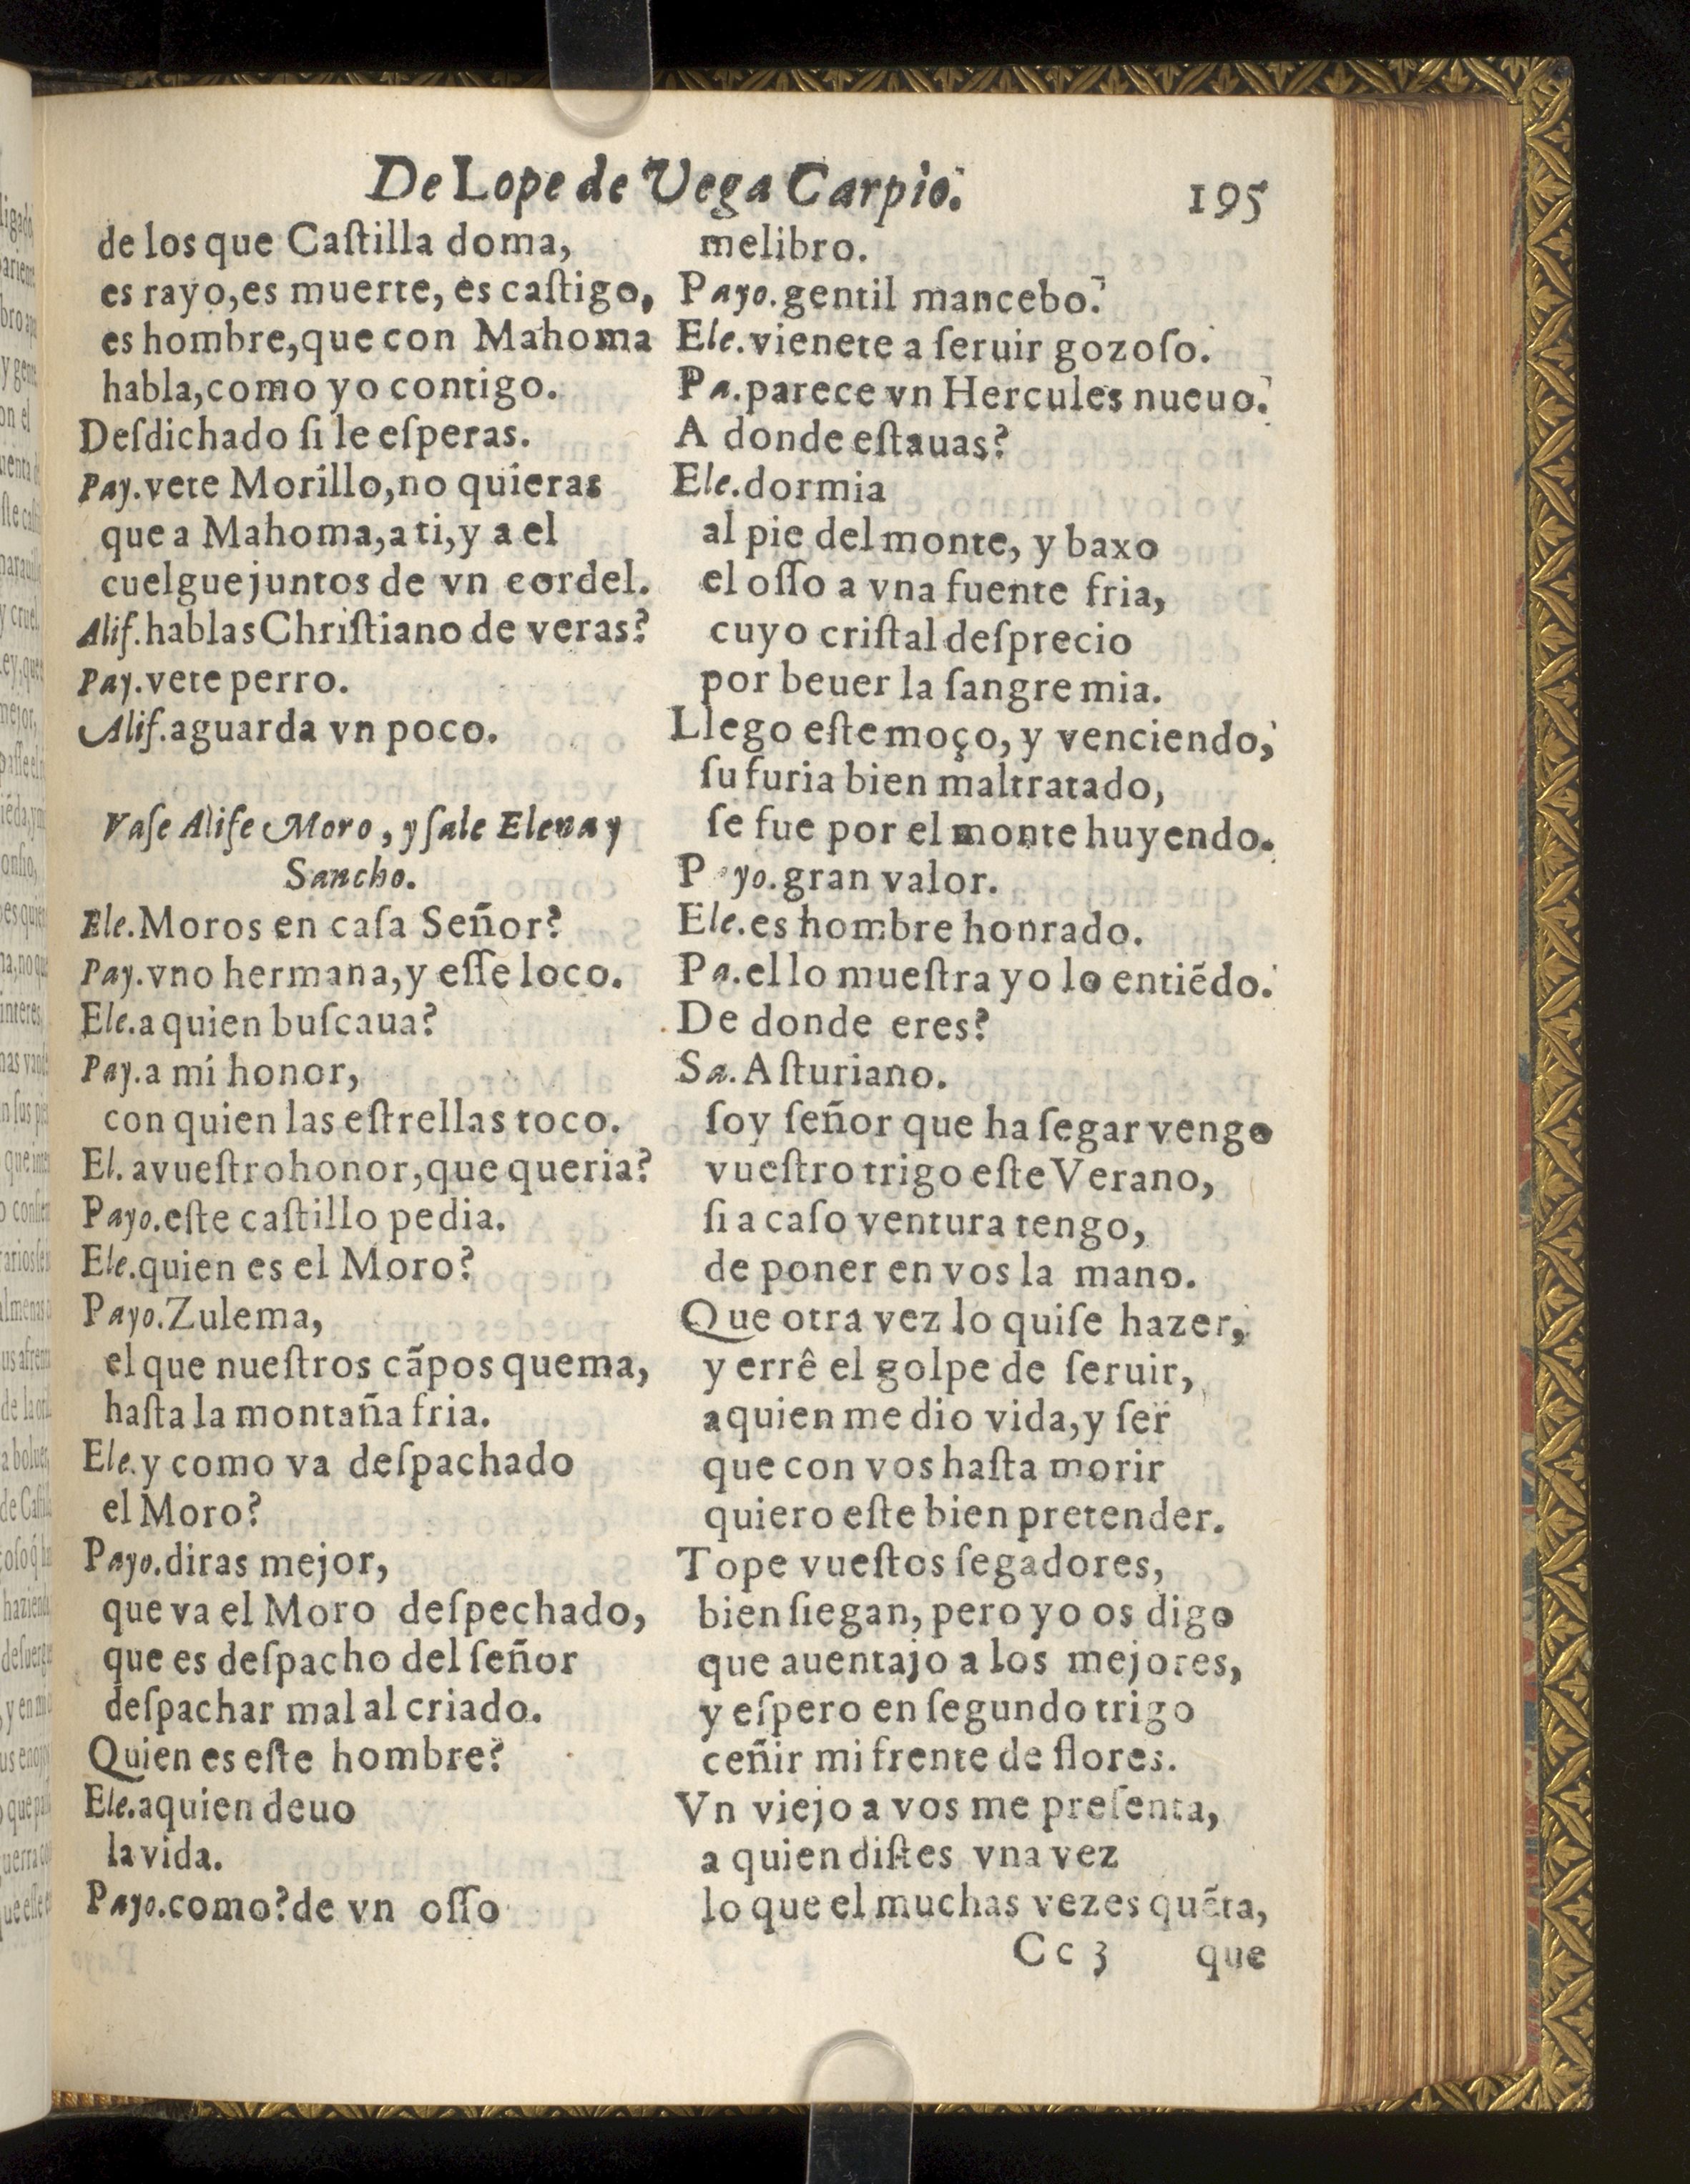 De Lope de Vega Carpio.
195
de los que Caſtilla doma,
es rayo,es muerte, es caſtigo,
es hombre,que con Mahoma
habla,como yo contigo.
Deſdichado ſi le eſperas.
Pay.vete Morillo,no quieras
que a Mahoma,a ti,y a el
cuelgue juntos de vn cordel.
Alif.hablas Chriſtiano de veras?
Pay.vete perro.
Alif.aguarda vn poco.
Vaſe Alife Moro, y ſale Elena y
Sancho.
Ele.Moros en caſa Señor?
Pay.vno hermana,y eſſe loco.
Ele.a quien buſcaua?
Pay.a mi honor,
con quien las eſtrellas toco.
El. a vueſtro honor,que queria?
Payo.eſte caſtillo pedia.
Ele.quien es el Moro?
Payo.Zulema,
el que nueſtros cãpos quema,
haſta la montaña fria.
Ele.y como va deſpachado
el Moro?
Payo.diras mejor,
que va el Moro deſpechado,
que es deſpacho del ſeñor
deſpachar mal al criado.
Quien es eſte hombre?
Ele.a quien deuo
la vida.
Payo.como?de vn oſſo
me libro.
Payo.gentil mancebo.
Ele.vienete a ſeruir gozoſo.
Pa.parece vn Hercules nueuo.
A donde eſtauas?
Ele.dormia
al pie del monte, y baxo
el oſſo a vna fuente fria,
cuyo criſtal deſprecio
por beuer la ſangre mia.
Llego eſte moço, y venciendo,
ſu furia bien maltratado,
ſe fue por el monte huyendo.
P yo.gran valor.
Ele.es hombre honrado.
Pa.el lo mueſtra yo lo entiẽdo.
De donde eres?
Sa.Aſturiano.
ſoy ſeñor que ha ſegar vengo
vueſtro trigo eſte Verano,
ſi a caſo ventura tengo,
de poner en vos la mano.
Que otra vez lo quiſe hazer,
y errê el golpe de ſeruir,
a quien me dio vida,y ſer
que con vos haſta morir
quiero eſte bien pretender.
Tope vueſtos ſegadores,
bien ſiegan, pero yo os digo
que auentajo a los mejores,
y eſpero en ſegundo trigo
ceñir mi frente de flores.
Vn viejo a vos me preſenta,
a quien diſtes vna vez
lo que el muchas vezes quẽta,
Cc 3
que